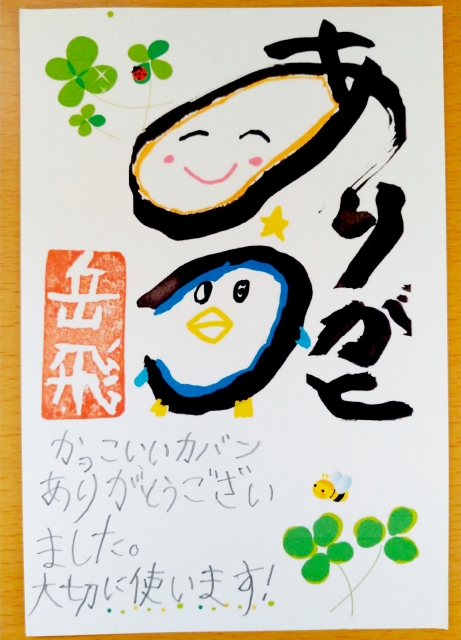 ありがとう
岳飛
かっこいいカバン
ありがとうござい
ました。
大切に使います!